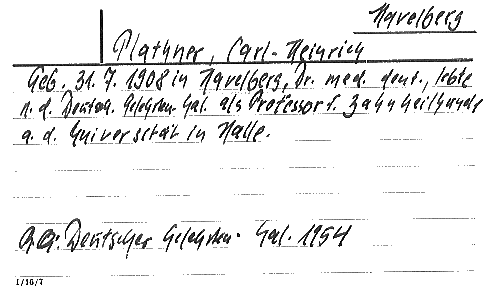 Havelberg
Plathner, Carl-Heinrich
Geb. 31.7.1908 in Havelberg, Dr. med. dent., lebte
n. d. Deutsch. Gelehrten Kal. als Professor f. Zahnheilkunde
a. d. Universität in Halle.
Deutscher Gelehrten- Kal. 1954
1/10/7